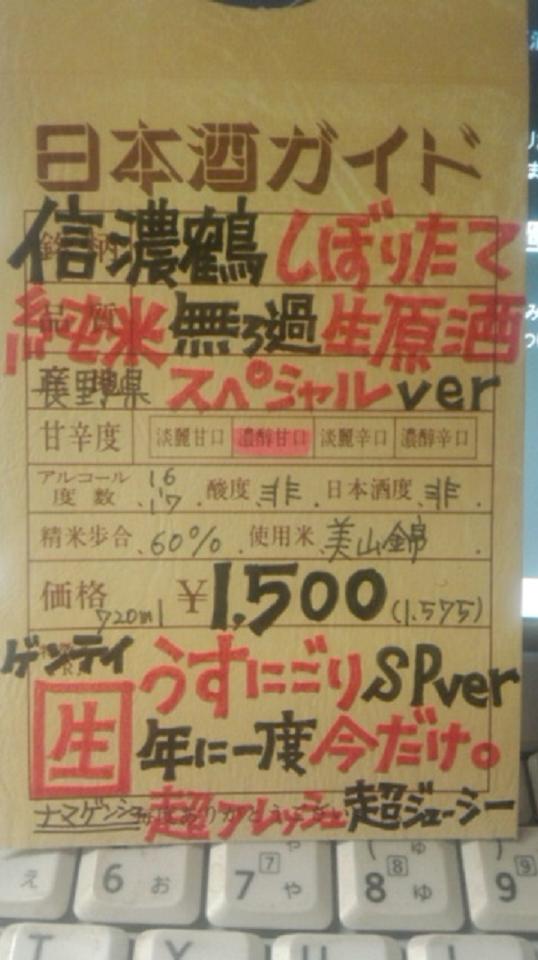 日本酒ガイド
信濃鶴 しぼりたて
純米 無ろ過 生原酒
長野県 スペシャル ver
甘辛度 淡麗甘口 濃醇甘口 淡麗辛口 濃醇辛口
アルコール度数 16 17 酸度 非 日本酒度 非
精米歩合 60% 使用米 美山錦
価格 720ml ¥1,500 (1.575)
ゲンテイ うすにごり SPver
生 年に一度 今だけ。
ナマゲンシュ 超フレッシュ 超ジューシー
え 6 お 7 や ゃ 7 8 ( ゆ ゅ 8 9 9
T Y U